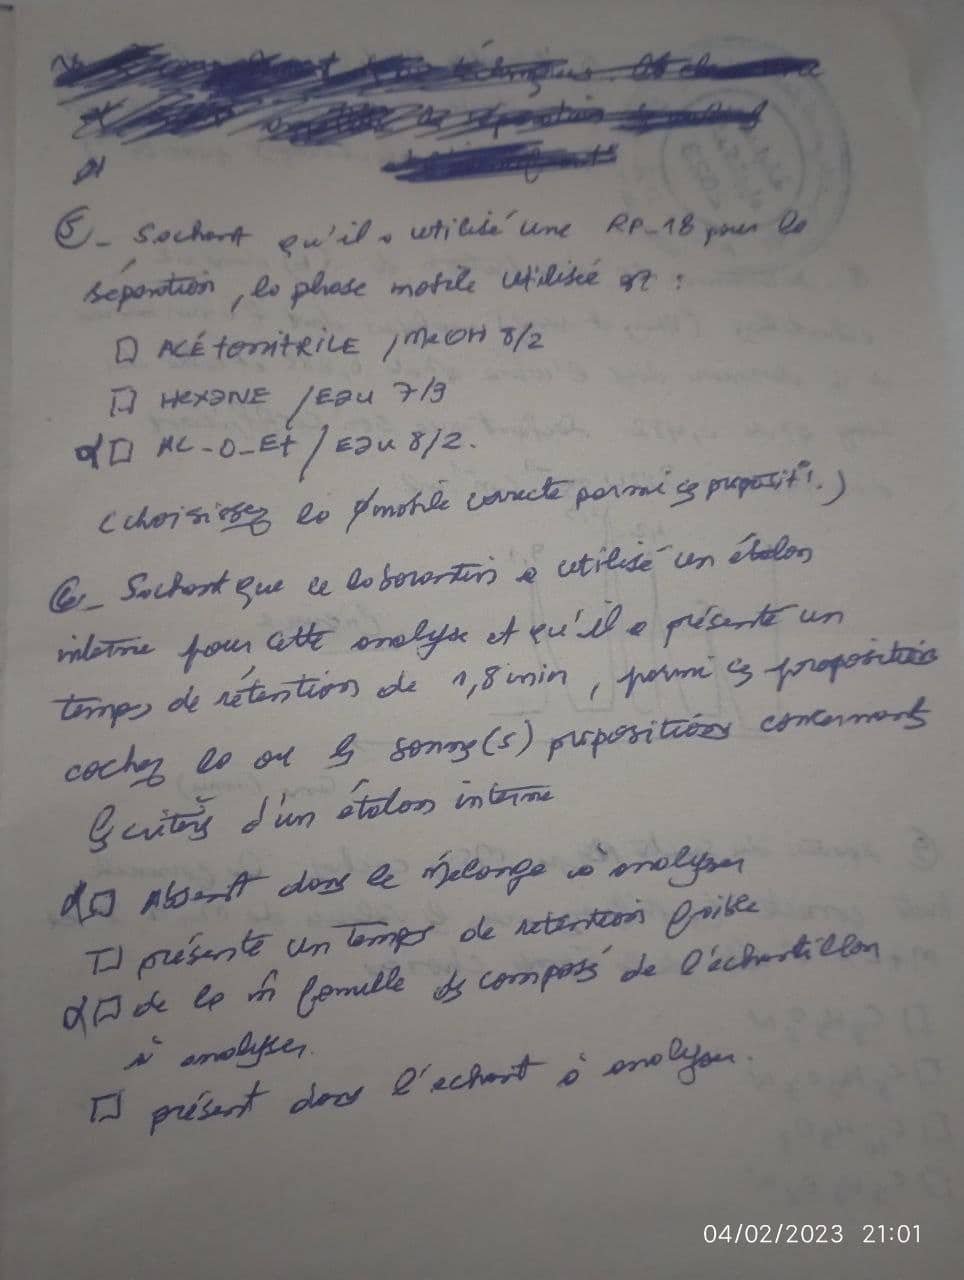 5_ Sachant qu'il a utilisé une RP_18 pour la
séparation, la phase mobile utilisée est :
□ ACÉTONITRILE / MeOH 8/2
□ HEXANE / EAU 7/3
□ AC_O_Et / EAU 8/2.
(choisissez la φ mobile correcte parmi ces proposit°.)
6_ Sachant que ce laborantin a utilisé un étalon
interne pour cette analyse et qu'il a présenté un
temps de rétention de 1,8 min, parmi ces propositions
cochez la ou les bonne(s) propositions concernant
les critères d'un étalon interne
□ Absent dans le mélange à analyser
□ présente un temps de rétention faible
□ de la m̂ famille des composés de l'échantillon
à analyser.
□ présent dans l'échant à analyser.
04/02/2023 21:01